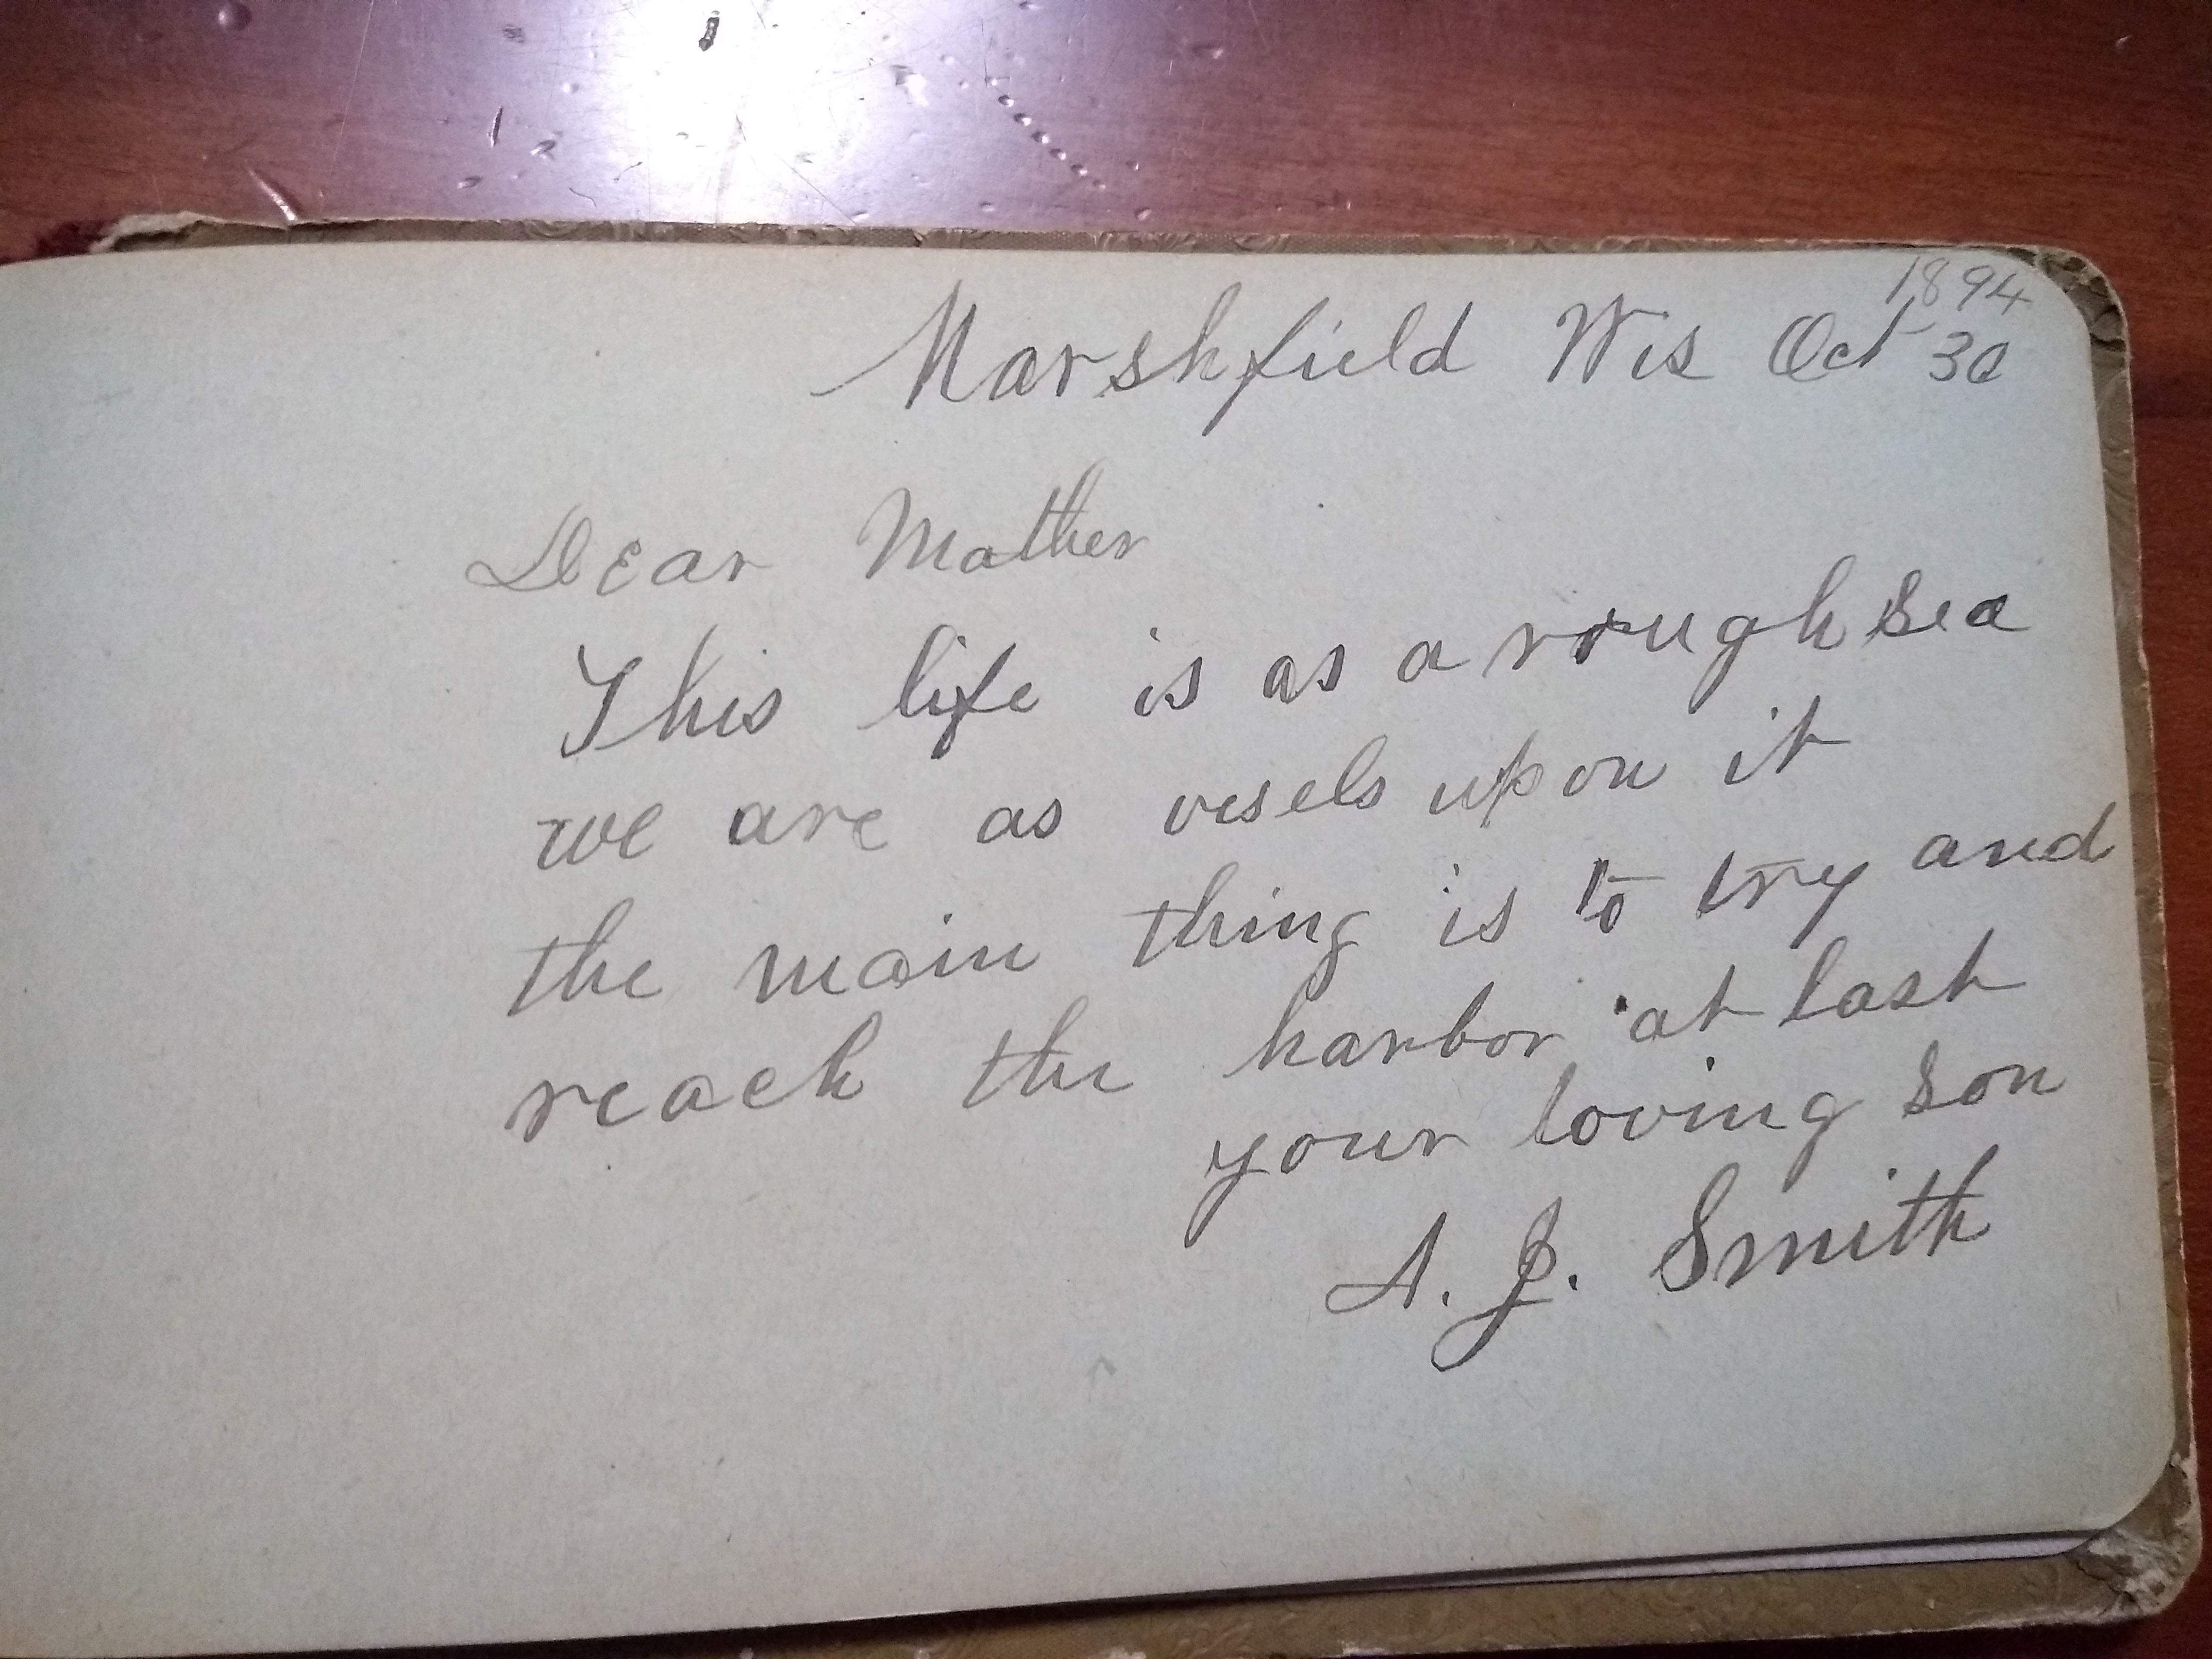 1894
Marshfield Wis Oct 30
Dear Mother
This life is as a rough sea
we are as vesels upon it
the main thing is to try and
reach the harbor at last
your loving son
A. J. Smith